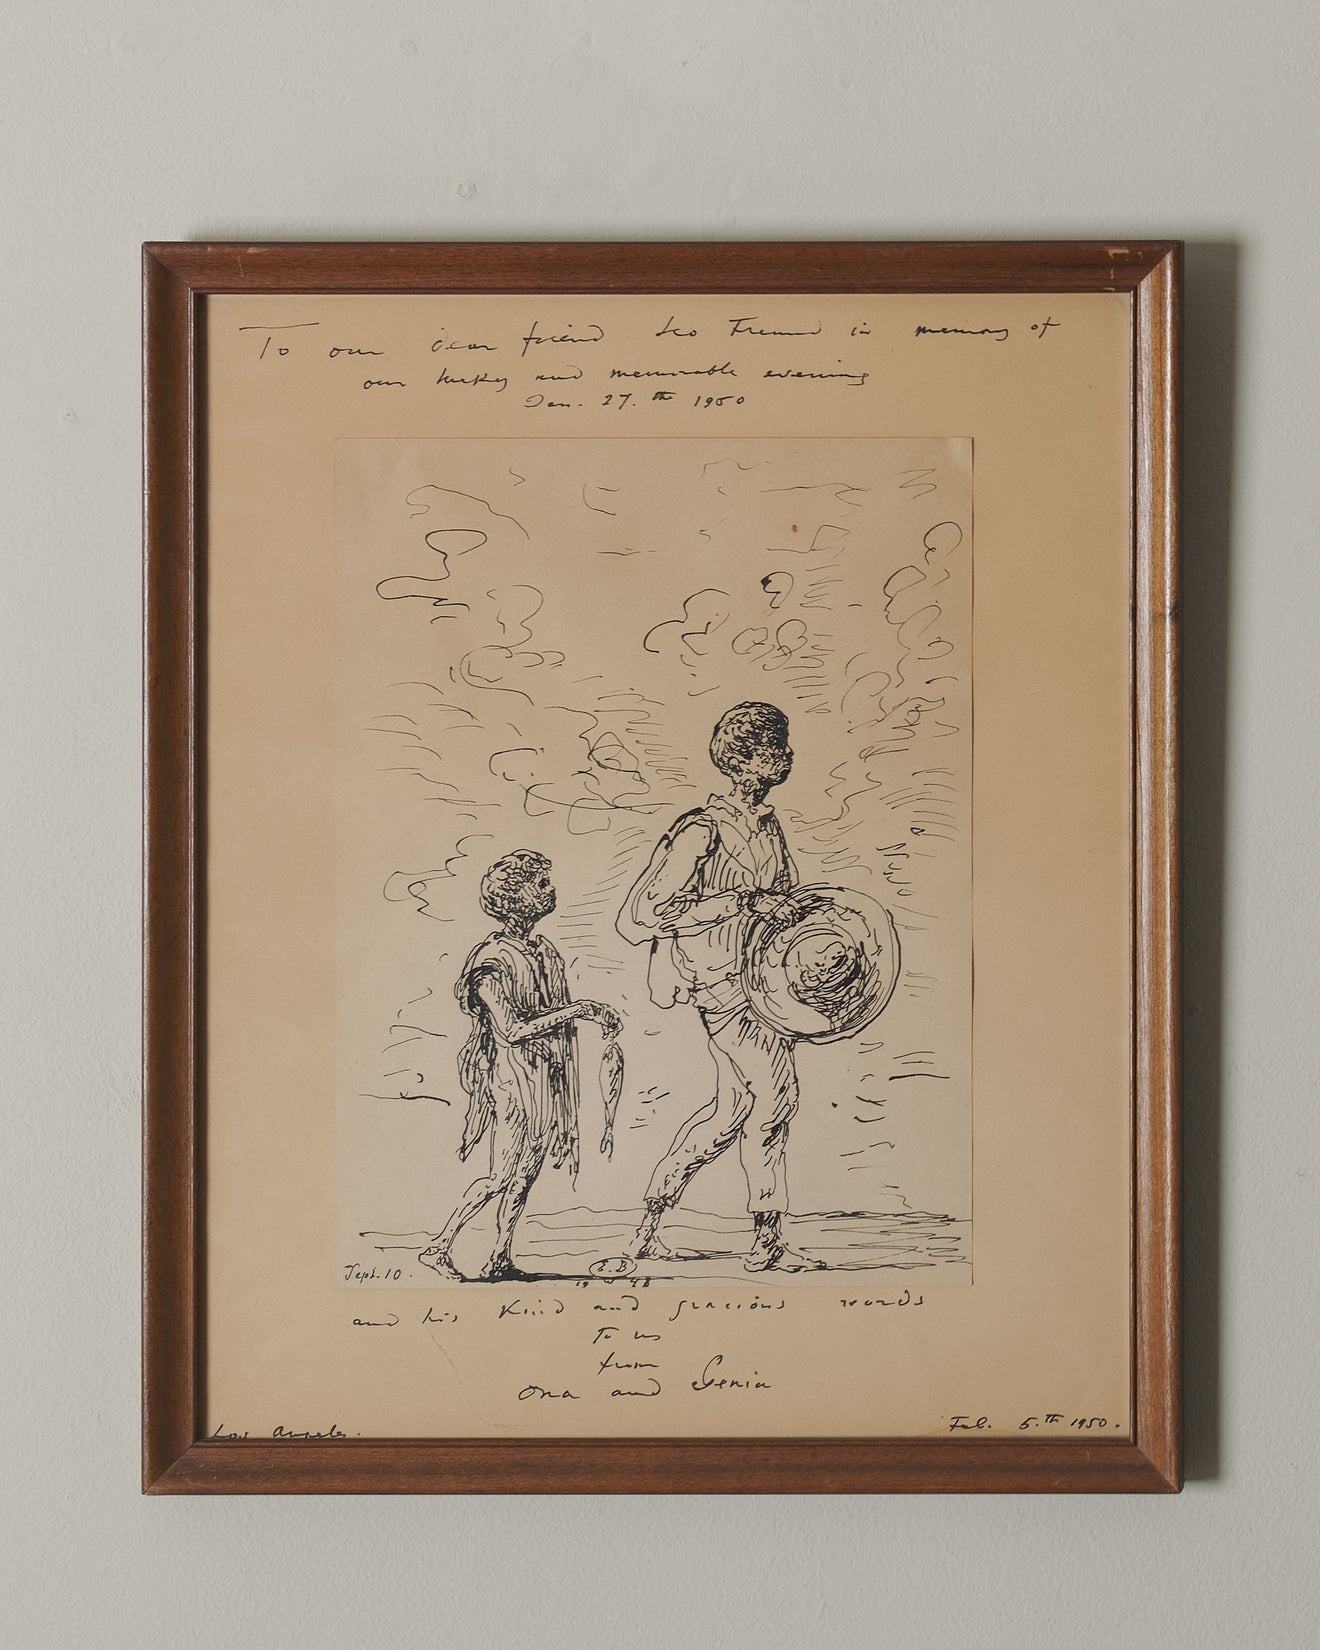 To our dear friend Leo Freund in memory of
our lucky and memorable evening
Jan. 27.th 1950
Sept. 10.
E.B
19 48
and his kind and gracious words
to us
from
Ona and Genia
Los Angeles.
Feb. 5.th 1950.